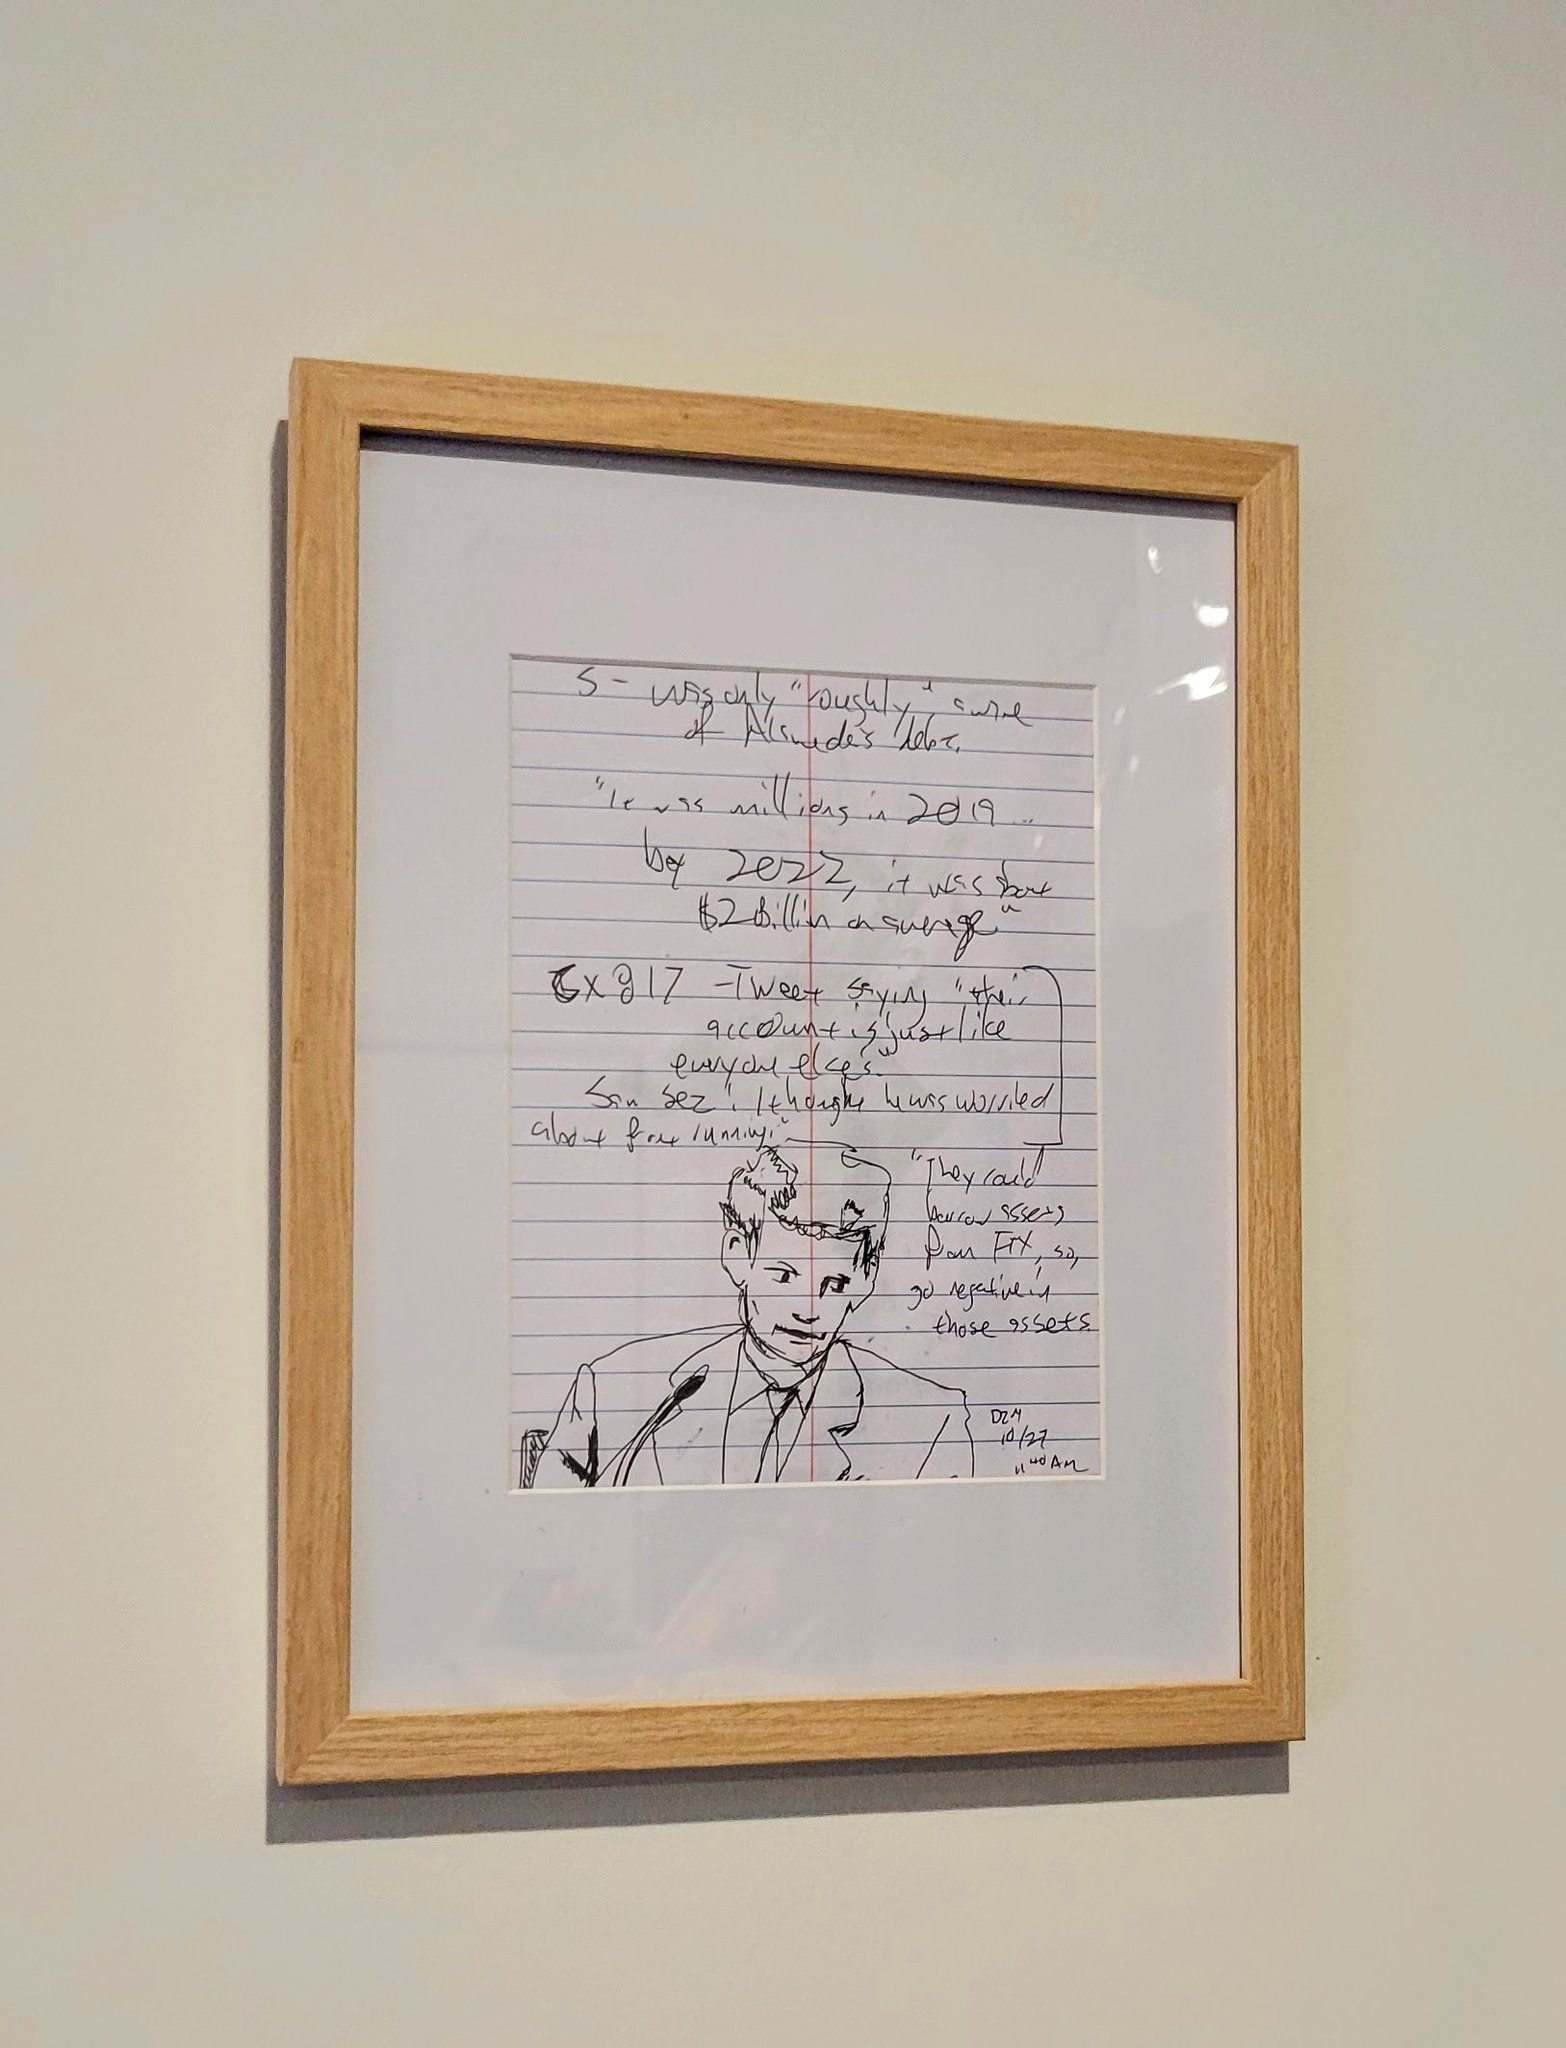 S - was only "roughly" aware
of Alameda's debt.
"It was millions in 2019 ...
by 2022, it was about
$2 Billin on average"
Gx 917 - Tweet saying "their
account is just like
everyone else's."
Sam sez: I thought he was worried
about front running"
"They could
borrow assets
from FTX, so,
go negative in
those assets
10/27
11:40 AM